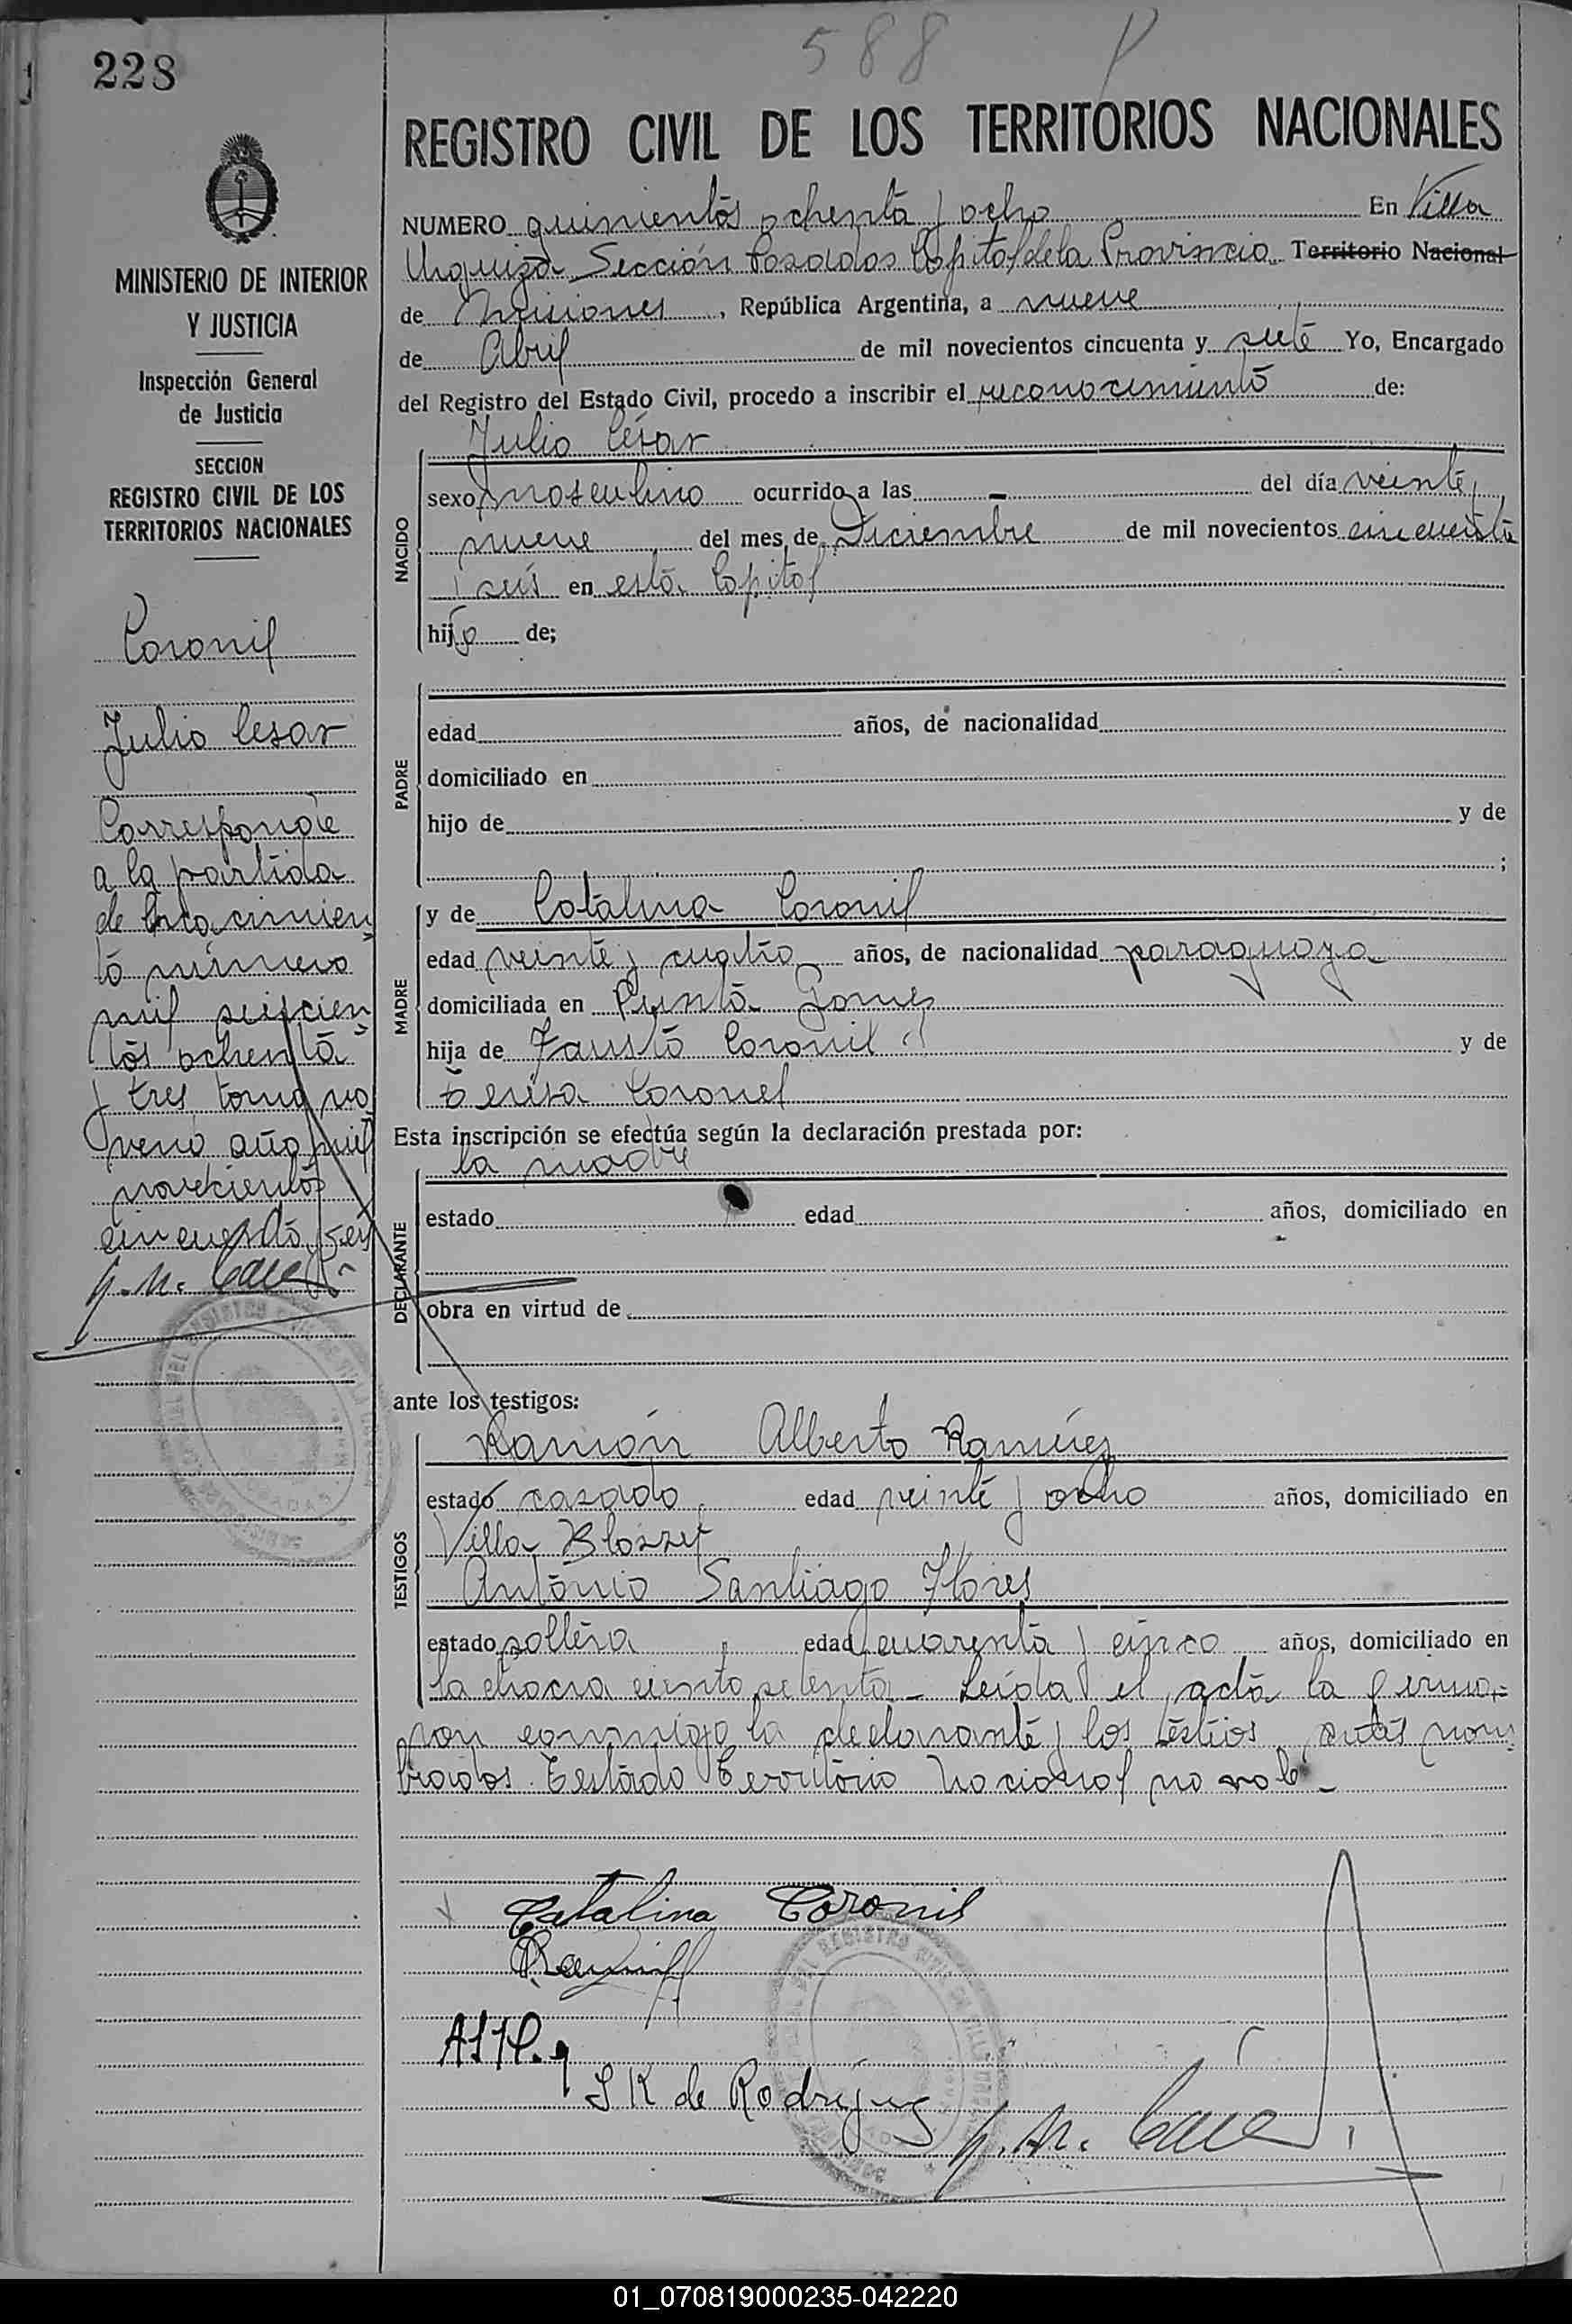 228
588 P
REGISTRO CIVIL DE LOS TERRITORIOS NACIONALES
MINISTERIO DE INTERIOR
Y JUSTICIA
Inspección General
de Justicia
SECCION
REGISTRO CIVIL DE LOS
TERRITORIOS NACIONALES
Coronil
Julio Cesar
Corresponde
a la partida
de nacimien
to número
mil seiscien
tos ochenta
y tres tomo no
veno año mil
novecientos
cincuenta y seis
NUMERO quinientos ochenta y ocho En Villa
Urquiza Sección Posadas Capital de la Provincia Territorio Nacional
de Misiones, República Argentina, a nueve
de Abril de mil novecientos cincuenta y siete Yo, Encargado
del Registro del Estado Civil, procedo a inscribir el reconocimiento de:
Julio César
NACIDO
sexo masculino ocurrido a las - del día veinte
nueve del mes de Diciembre de mil novecientos cincuenta
y seis en esta Capital
hijo de;
PADRE
edad años, de nacionalidad
domiciliado en
hijo de y de
;
MADRE
y de Catalina Coronil
edad veinte y cuatro años, de nacionalidad paraguaya
domiciliada en Punta Gomes
hija de Fausto Coronil y de
Coronel
Esta inscripción se efectúa según la declaración prestada por:
la madre
DECLARANTE
estado edad años, domiciliado en
obra en virtud de
ante los testigos:
TESTIGOS
Ramón Alberto Ramírez
estado casado edad veinte y ocho años, domiciliado en
Villa Blosset
Antonio Santiago Flores
estado soltero edad cuarenta y cinco años, domiciliado en
la chacra ciento setenta - Leída el acta la firma-
ron conmigo la declarante y los antes nom
brados. Testado Territorio Nacional no vale -
Catalina Coronil
S K de Rodriguez
01_070819000235-042220